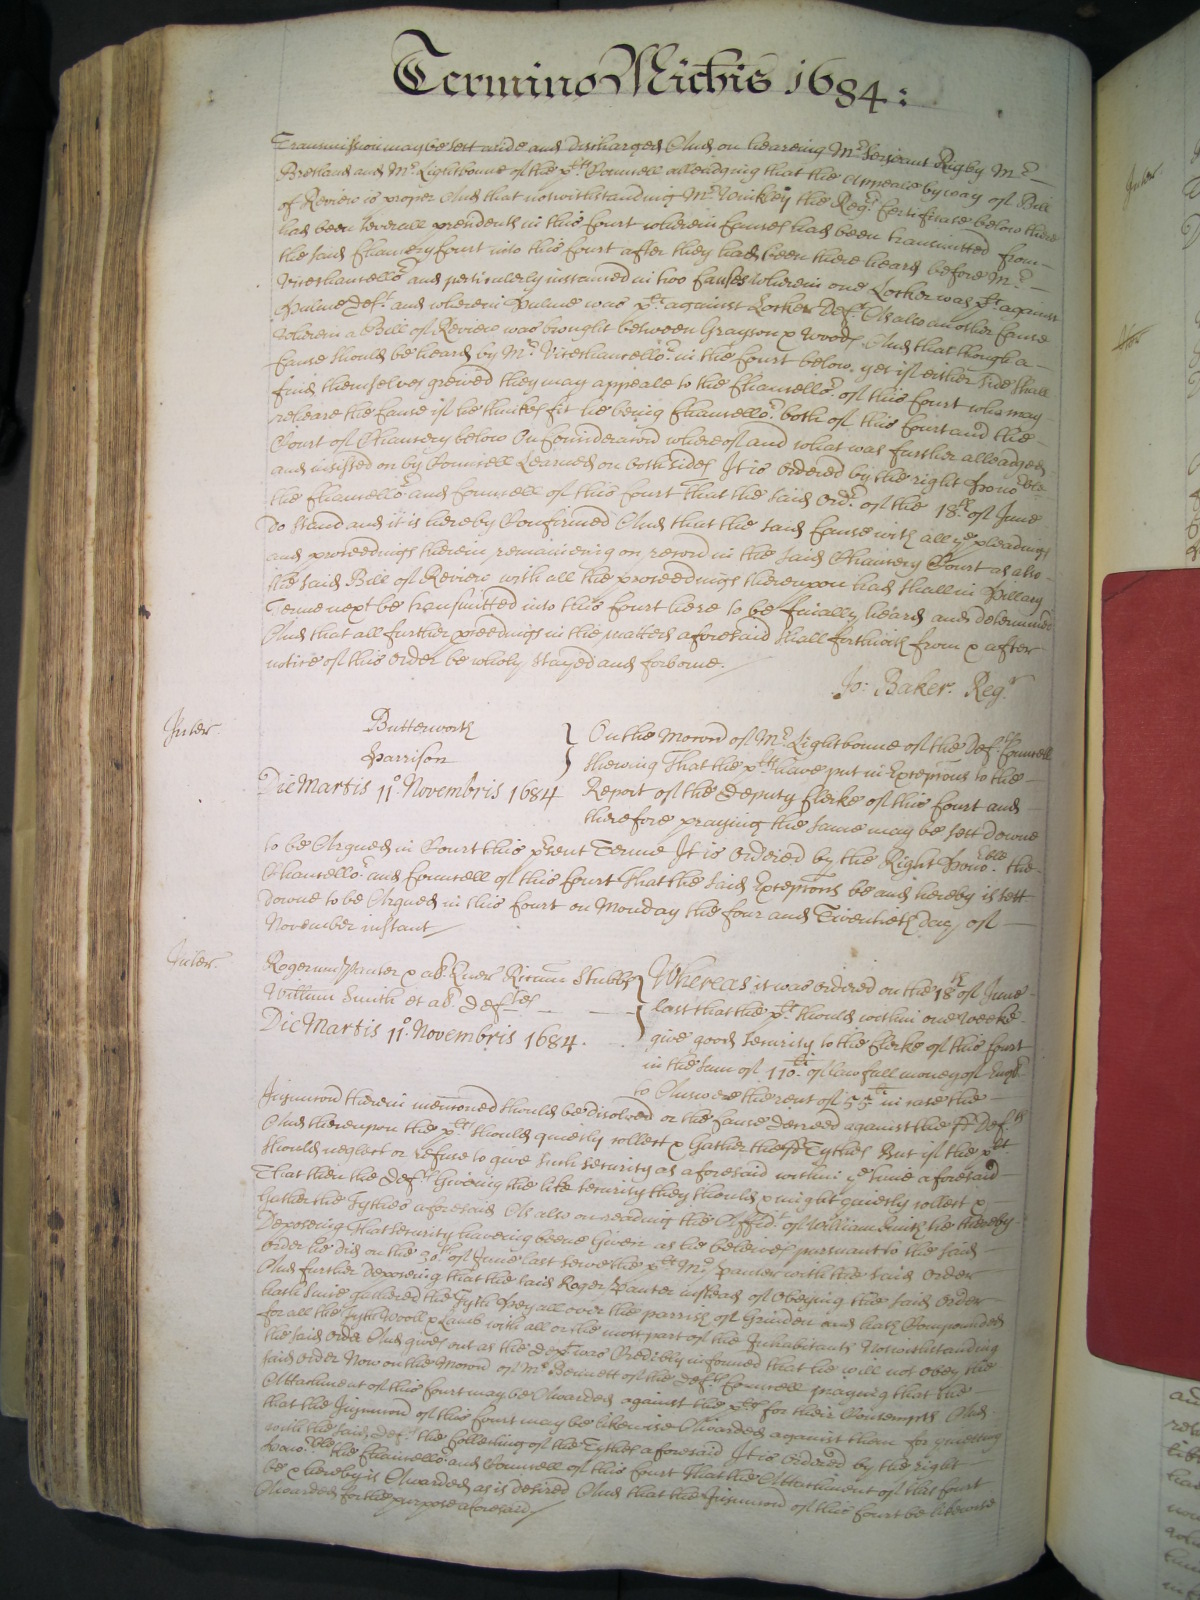 Termino Michis 1684:
Transmission may be sett aside and discharged And on heareing Mr Serjeant Rigby Mr
Bretland and Mr Lightbourne of the plts Councell alleadging that the Appeale by way of Bill
of Review is proper And that notwithstanding Mr Winkley the Regrs Certificate below there
had been severall presidents in this Court wherein Causes had been transmitted from
the said Chancery Court into this Court after they had been there heard before Mr
Vicechancellor and perticulerly instanced in two Causes wherein one Lother was plt against
Hulme Deft and wherein Hulme was plt against Lother Deft As also an other Cause
wherein a Bill of Review was brought between Grayson & Woods And that though a
Cause should be heard by Mr Vicechancellor in the Court below, yet if either side shall
find themselves greived they may appeale to the Chancellor of this Court who may
reheare the Cause if he thinkes fit he being Chancellor both of this Court and the
Court of Chancery below On Consideracon whereof and what was further alleadged
and insisted on by Councell Learned on both sides It is Ordered by the right honoble
the Chancellor and Councell of this Court That the said Ordr of the 18th of June
do stand and it is hereby Confirmed And that the said Cause with all ye pleadings
and proceedings therein remaineing on record in the said Chancery Court as also
the said Bill of Review with all the proceedings thereupon had shall in Hillary
Terme next be transmitted into this Court here to be finally heard and determined
And that all further pceedings in the matters aforesaid shall forthwith from & after
notice of this Order be wholy stayed and forborne.
Jo: Baker. Regr
Inter
Butterworth
Harrison
Die Martis 11o Novembris 1684
On the Mocon of Mr Lightbourne of the Defts Councell
shewing That the plts have put in Excepcons to the
Report of the Deputy Clerke of this Court and
therefore praying the same may be sett downe
to be Argued in Court this psent Terme It is Ordered by the Right Honoble the
Chancellor and Councell of this Court That the said Excepcons be and hereby is sett
downe to be Argued in this Court on Monday the four and Twentieth day of
November instant
Inter
Rogerum Hanter & al. Quer Ricum Stubbs
Willum Smith et al. Deftes
Die Martis 11o Novembris 1684.
Whereas it was ordered on the 18th of June
last that the plt should within one Weeke
give good security to the Clerke of this Court
in the sum of 110li of lawfull money of Engld
to Answere the rent of 55li in case the
Injuncon therein menconed should be disolved or the Cause Decreed against the sd Defts
And thereupon the plts should quietly collect & Gather the sd Tythes But if the plt
should neglect or refuse to give such security as aforesaid within ye time aforesaid
That then the Defts Giveing the like security they should & might quietly collect &
Gather the Tythes aforesaid As also on reading the Affidt of William Smith he thereby
Deposeing That security haveing beene Given as he beleives pursuant to the said
Order he did on the 30th of June last serve the plt Mr Hanter with the said Order
And further Deposeing that the said Roger Hanter instead of Obeying the said Order
hath since gathered the Tyth Hey all over the parrish of Grinden and hath Compounded
for all the Tyth Wooll & Lamb with all or the most part of the Inhabitants Notwithstanding
the said Order And gives out as the Dept was Credibly informed that he will not obey the
said order Now on the Mocon of Mr Bennett of the Defts Councell praying that the
Attachment of this Court may be Awarded against the plts for their Contempts And
that the Injuncon of this Court may be likewise Awarded against them for quieting
with the said Defts the Collecting of the Tythes aforesaid It is Ordered by the right
honoble the Chancellor and Councell of this Court That the Attachment of this Court
be & hereby is Awarded as is desired And that the Injuncon of this Court be likewise
Awarded for the purpose aforesaid